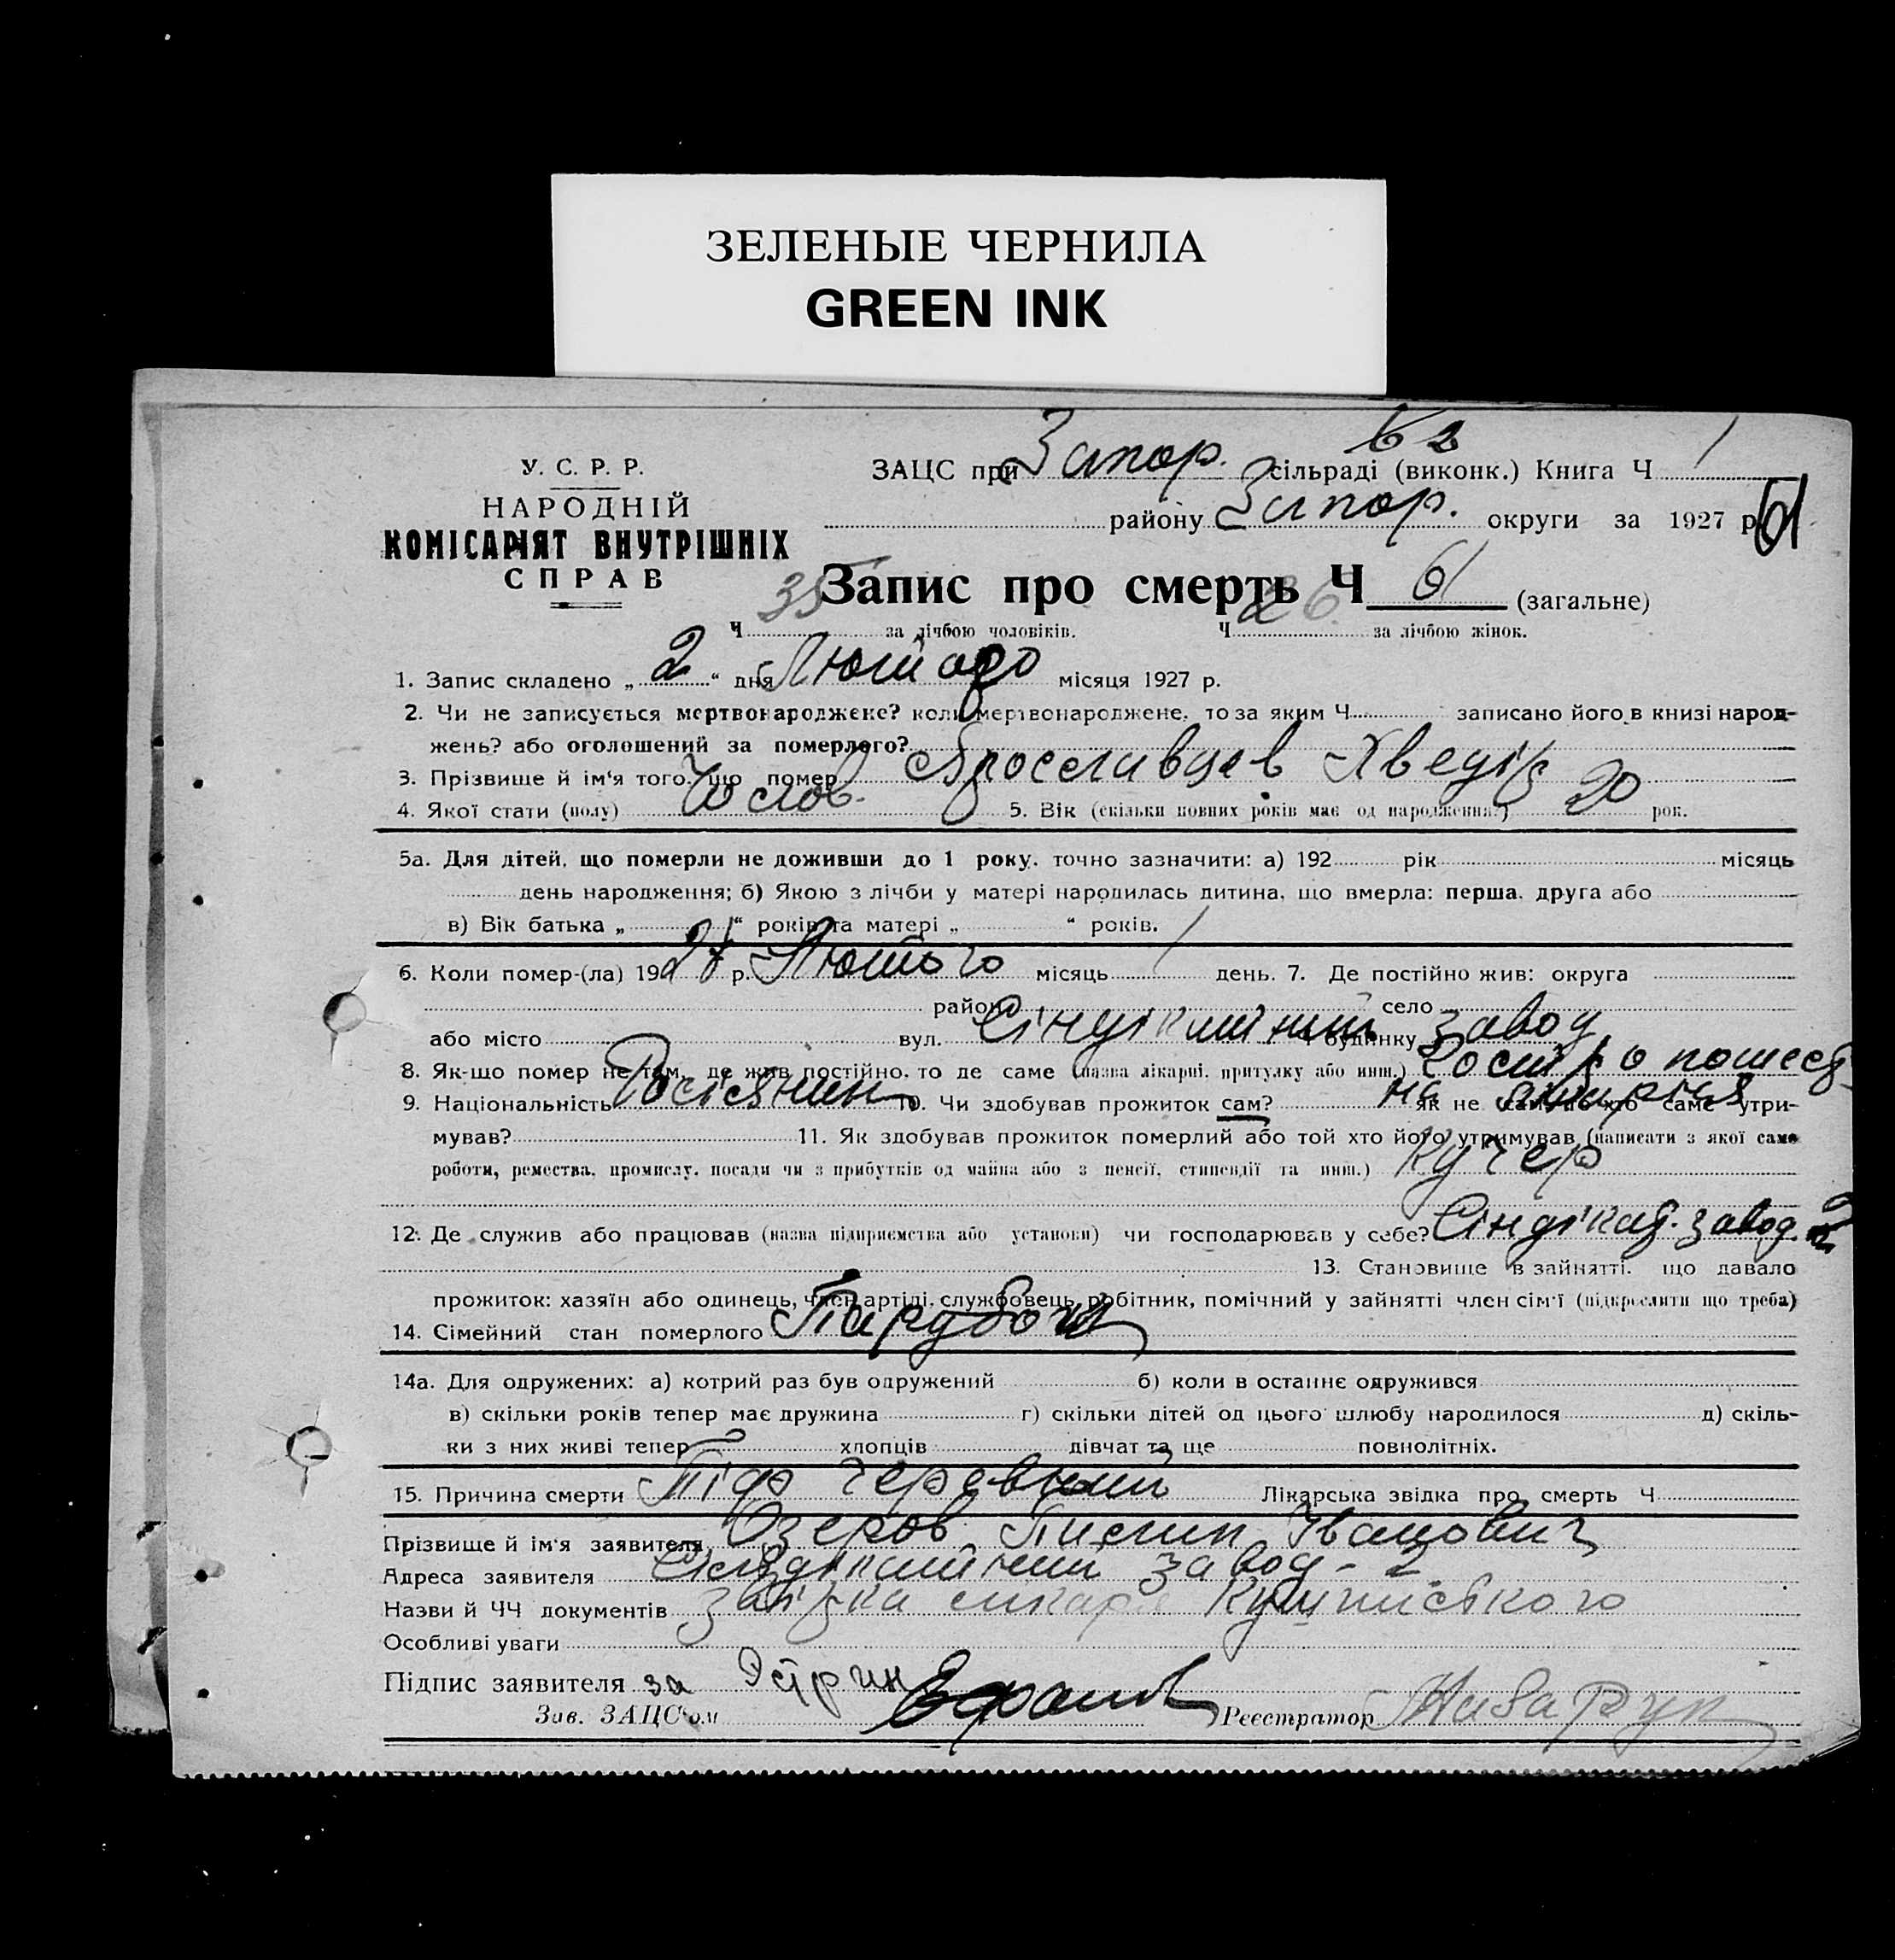 ЗЕЛЕНЫЕ ЧЕРНИЛА
GREEN INK
У. С. Р. Р.
НАРОДНІЙ
КОМІСАРІЯТ ВНУТРІШНІХ
СПРАВ
62
ЗАЦС при Запор. сільраді (виконк.) Книга Ч 1
району Запор. округи за 1927 р. 61
Запис про смерть Ч 61 (загальне)
Ч 35 за лічбою чоловіків. Ч 26 за лічбою жінок.
1. Запис складено „ 2 “ дня Лютого місяця 1927 р.
2. Чи не записується мертвонароджене? коли мертвонароджене, то за яким Ч записано його в книзі народ-
жень? або оголошений за померлого?
3. Прізвище й ім‘я того, що помер Ярославцев Хведір
4. Якої стати (полу) Чолов. 5. Вік (скільки повних років має од народження?) 20 рок.
5а. Для дітей, що померли не доживши до 1 року, точно зазначити: а) 192 рік місяць
день народження; б) Якою з лічби у матері народилась дитина, що вмерла: перша, друга або
в) Вік батька „ “ років та матері „ “ років.
6. Коли помер-(ла) 1927 р. Лютого місяць 1 день. 7. Де постійно жив: округа
район село
або місто вул. Сіндікатний Ч будинку завод
8. Як-що помер не там, де жив постійно, то де саме (назва лікарні, притулку або инш.)
9. Національність Росіянин 10. Чи здобував прожиток сам? як не сам, то хто саме утри-
мував? 11. Як здобував прожиток померлий або той хто його утримував (написати з якої саме
роботи, ремества, промислу, посади чи з прибутків од майна або з пенсії, стипендії та инш.) Кучер
12. Де служив або працював (назва підприємства або установи) чи господарював у себе? Сіндікат. завод 2
13. Становище в зайнятті, що давало
прожиток: хазяїн або одинець, член артілі, службовець, робітник, помічний у зайнятті член сім‘ї (підкреслити що треба)
14. Сімейний стан померлого Парубок
14а. Для одружених: а) котрий раз був одружений б) коли в останнє одружився
в) скільки років тепер має дружина г) скільки дітей од цього шлюбу народилося д) скіль-
ки з них живі тепер хлопців дівчат та ще повнолітніх.
15. Причина смерти Тіф черевний Лікарська звідка про смерть Ч
Прізвище й ім‘я заявителя Озеров Іванович
Адреса заявителя Сіндікатний завод - 2
Назви й ЧЧ документів звідка лікаря
Особливі уваги
Підпис заявителя за
Зав. ЗАЦС‘ом Реєстратор